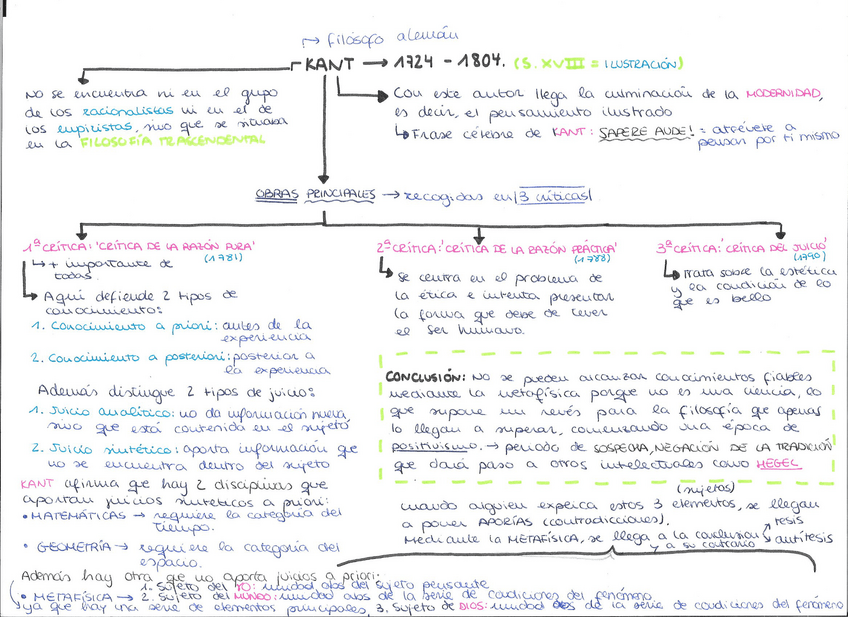 → filósofo alemán
KANT → 1724 - 1804. (S. XVIII = ILUSTRACIÓN)
No se encuentra ni en el grupo
de los racionalistas ni en el de
los empiristas, sino que se situaba
en la FILOSOFÍA TRASCENDENTAL
Con este autor llega la culminación de la MODERNIDAD,
es decir, el pensamiento ilustrado
Frase célebre de KANT: SAPERE AUDE! = atrévete a
pensar por ti mismo
OBRAS PRINCIPALES → recogidas en 3 críticas
1ª CRÍTICA: 'CRÍTICA DE LA RAZÓN PURA'
(1781)
+ importante de
todas.
Aquí defiende 2 tipos de
conocimiento:
1. Conocimiento a priori: antes de la
experiencia
2. Conocimiento a posteriori: posterior a
la experiencia
Además distingue 2 tipos de juicio:
1. Juicio analítico: no da información nueva,
sino que está contenida en el sujeto
2. Juicio sintético: aporta información que
no se encuentra dentro del sujeto
KANT afirma que hay 2 disciplinas que
aportan juicios sintéticos a priori:
• MATEMÁTICAS → requiere la categoría del
tiempo.
• GEOMETRÍA → requiere la categoría del
espacio.
2ª CRÍTICA: 'CRÍTICA DE LA RAZÓN PRÁCTICA'
(1788)
Se centra en el problema de
la ética e intenta presentar
la forma que debe de tener
el ser humano.
3ª CRÍTICA: 'CRÍTICA DEL JUICIO'
(1790)
Trata sobre la estética
y la condición de lo
que es bello
CONCLUSIÓN: No se pueden alcanzar conocimientos fiables
mediante la metafísica porque no es una ciencia, lo
que supone un revés para la filosofía que apenas
lo llegan a superar, comenzando una época de
positivismo. → periodo de SOSPECHA, NEGACIÓN DE LA TRADICIÓN
que dará paso a otros intelectuales como HEGEL
(sujetos)
cuando alguien explica estos 3 elementos, se llegan
a poner APORÍAS (contradicciones).
Mediante la METAFÍSICA, se llega a la conclusión
y a su contrario
tesis
antítesis
Además hay otra que no aporta juicios a priori:
1. Sujeto del YO: unidad abs del sujeto pensante
• METAFÍSICA → 2. Sujeto del MUNDO: unidad abs de la serie de condiciones del fenómeno
ya que hay una serie de elementos principales, 3. Sujeto de DIOS: unidad abs de la serie de condiciones del fenómeno